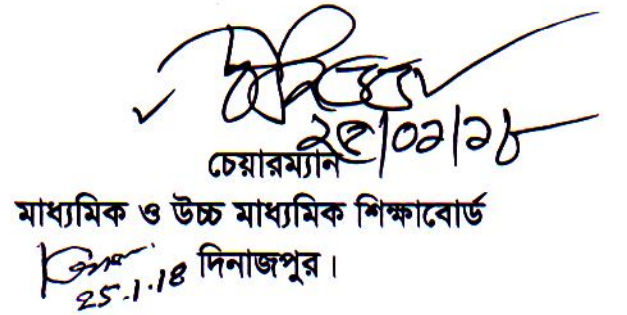 ২৫/০১/১৮
চেয়ারম্যান
মাধ্যমিক ও উচ্চ মাধ্যমিক শিক্ষাবোর্ড
25.1.18 দিনাজপুর।